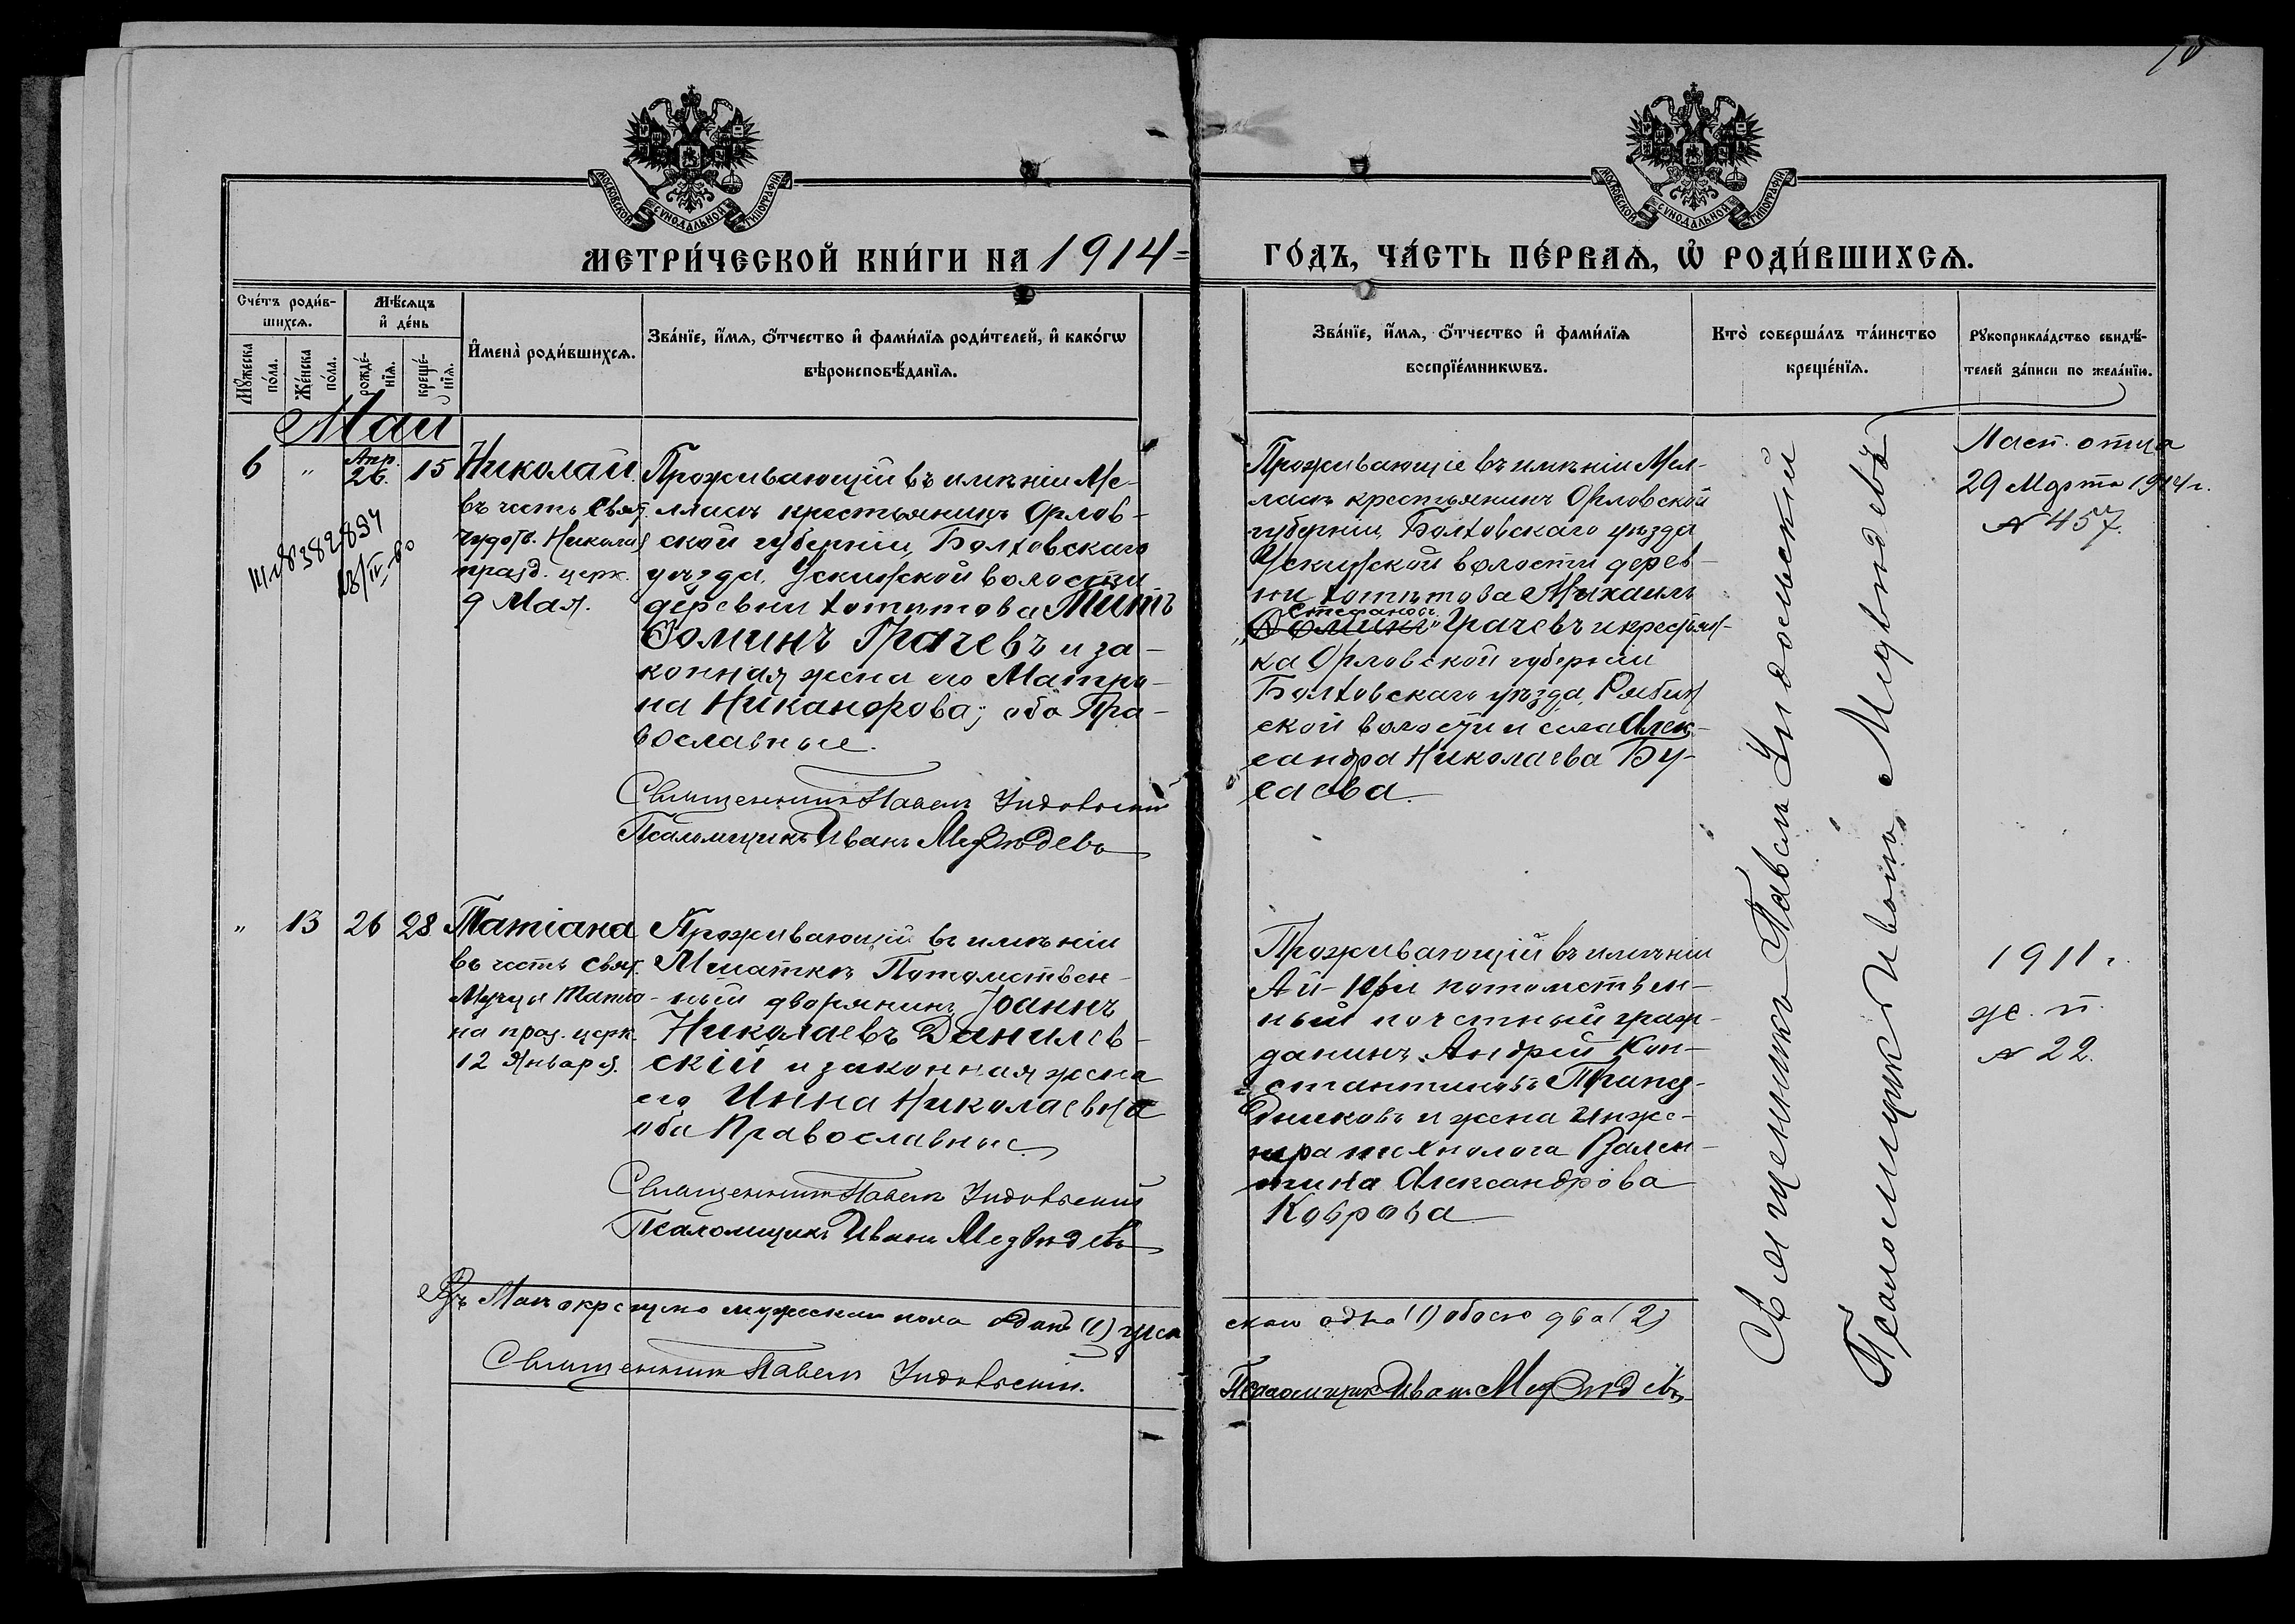 10
МОСКОВСКОЙ СѴНОДАЛЬНОЙ ТИПОГРАФІИ
МОСКОВСКОЙ СѴНОДАЛЬНОЙ ТИПОГРАФІИ
МЕТРИ́ЧЕСКОЙ КНИ́ГИ НА 1914=
ГО́ДЪ, ЧА́СТЬ ПЕ́РВАѦ, Ѡ҆ РОДИ́ВШИХСѦ.
Сче́тъ роди́в-
шихсѧ.
Мѣ́сѧцъ
и҆ де́нь
Мꙋ́жеска
по́ла.
Же́нска
по́ла.
рожде́-
нїѧ.
креще́-
нїѧ.
И҆мена̀ роди́вшихсѧ.
Зва́нїе, и҆́мѧ, ѻ҆́тчество и҆ фами́лїѧ роди́телей, и҆ како́гѡ
вѣроисповѣ́данїѧ.
Зва́нїе, и҆́мѧ, ѻ҆́тчество и҆ фами́лїѧ
воспрїе́мникѡвъ.
Кто̀ соверша́лъ та́инство
креще́нїѧ.
Рꙋкоприкла́дство свидѣ́-
телей за́писи по жела́нїю.
Май
6 " Апр. 26. 15
Николай
въ честь Свят.
чудотв. Николая
празд. церк.
9 Мая.
Проживающій въ имѣніи Ме-
лласъ крестьянинъ Орлов-
ской губерніи, Болховскаго
уѣзда, Ускинской волости
деревни Хотѣтова Титъ
Ѳоминъ Грачевъ и за-
конная жена его Матро-
на Никанорова; оба Пра-
вославные.
Священникъ Павелъ Индовскій
Псаломщикъ Иванъ Медвѣдевъ
Проживающіе въ имѣніи Мел-
ласъ крестьянинъ Орловской
губерніи, Болховскаго уѣзда
Ускинской волости дерев-
ни Хотѣтова Михаилъ
Стефановъ
"Ѳоминъ" Грачевъ и крестьян-
ка Орловской губерніи
Болховскаго уѣзда,
ской волости и села Алек-
сандра Николаева Бу-
саева.
Пасп. отца
29 Марта 1914 г.
№ 457.
" 13 26 28
Татіана
въ честь Свят.
Мучцы Татіа-
на праз. церк.
12 Января.
Проживающій въ имѣніи
Мшаткѣ Потомствен-
ный дворянинъ Іоаннъ
Николаевъ Данилев-
скій и законная жена
его Инна Николаевна
оба Православные
Священникъ Павелъ Индовскій
Псаломщикъ Иванъ Медвѣдевъ
Проживающій въ имѣніи
Ай-Юри потомствен-
ный почетный граж-
данинъ Андрей Кон-
стантиновъ
и жена инже-
нера технолога Вален-
тина Александрова
Коврова
1911 г.
ж. п.
№ 22.
Священникъ Павелъ Индовскій
Псаломщикъ Иванъ Медвѣдевъ
Въ Маѣ окрещено мужескаго пола одинъ (1) жен
скаго одна (1) обоего два (2)
Священникъ Павелъ Индовскій.
Псаломщикъ Иванъ Медвѣдевъ